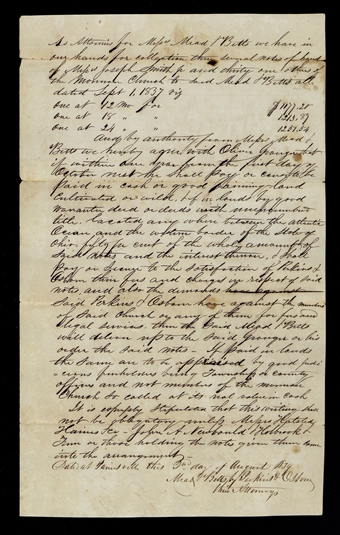 As Attornies for Messrs Mead & Betts we have in
our hands for collection three several notes of hand
of Messrs Joseph Smith jr and thirty one others of
the Mormon Church to said Mead & Betts all
dated Sept 1, 1837 viz
one at 12 Mo for $1177.28
one at 18 " " 1213.89
one at 24 " " 1251.54
And by authority from Messrs Mead &
Betts we hereby agree with Oliver Granger that
if within one year from the first day of
October next he shall pay or cause to be
paid in cash or good farming land
cultivated or wild, & if in lands by good
warrantee deed or deeds
located any where between the Atlantic
Ocean and the western border of the State of
Ohio fifty per cent of the whole amount of
said Notes and the interest thereon, & shall
pay or secure to the satisfaction of Perkins &
Osborn their fees and charges in respect of said
notes, and also the demands
said Perkins & Osborn have against the members
of said Church or any of them for fees and
legal services then the said Mead & Betts
will deliver up to the said Granger or his
order the said Notes - if paid in lands
the same are to be appraised by good
freeholders being Township or county
officers and not members of the mormon
Church so called at its real value in cash
It is expressly stipulated that this writing shall
not be obligatory unless Messrs Halsted
Haines & Co - John A. Newbould & Holbrook &
Firm or those holding the notes given them come
into the arrangement -
Dated at Painesville this 3rd day of August
Mead & Betts by Perkins & Osborn
their Attorneys